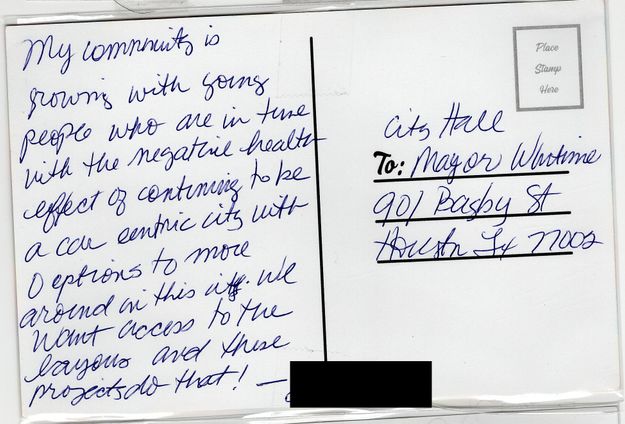 My community is
growing with young
people who are in tune
with the negative health
effect of continuing to be
a car centric city with
0 options to move
around in this city. We
want access to the
bayous and these
projects do that! —
Place
Stamp
Here
City Hall
To: Mayor Whitmire
901 Bagby St
Houston Tx 77002